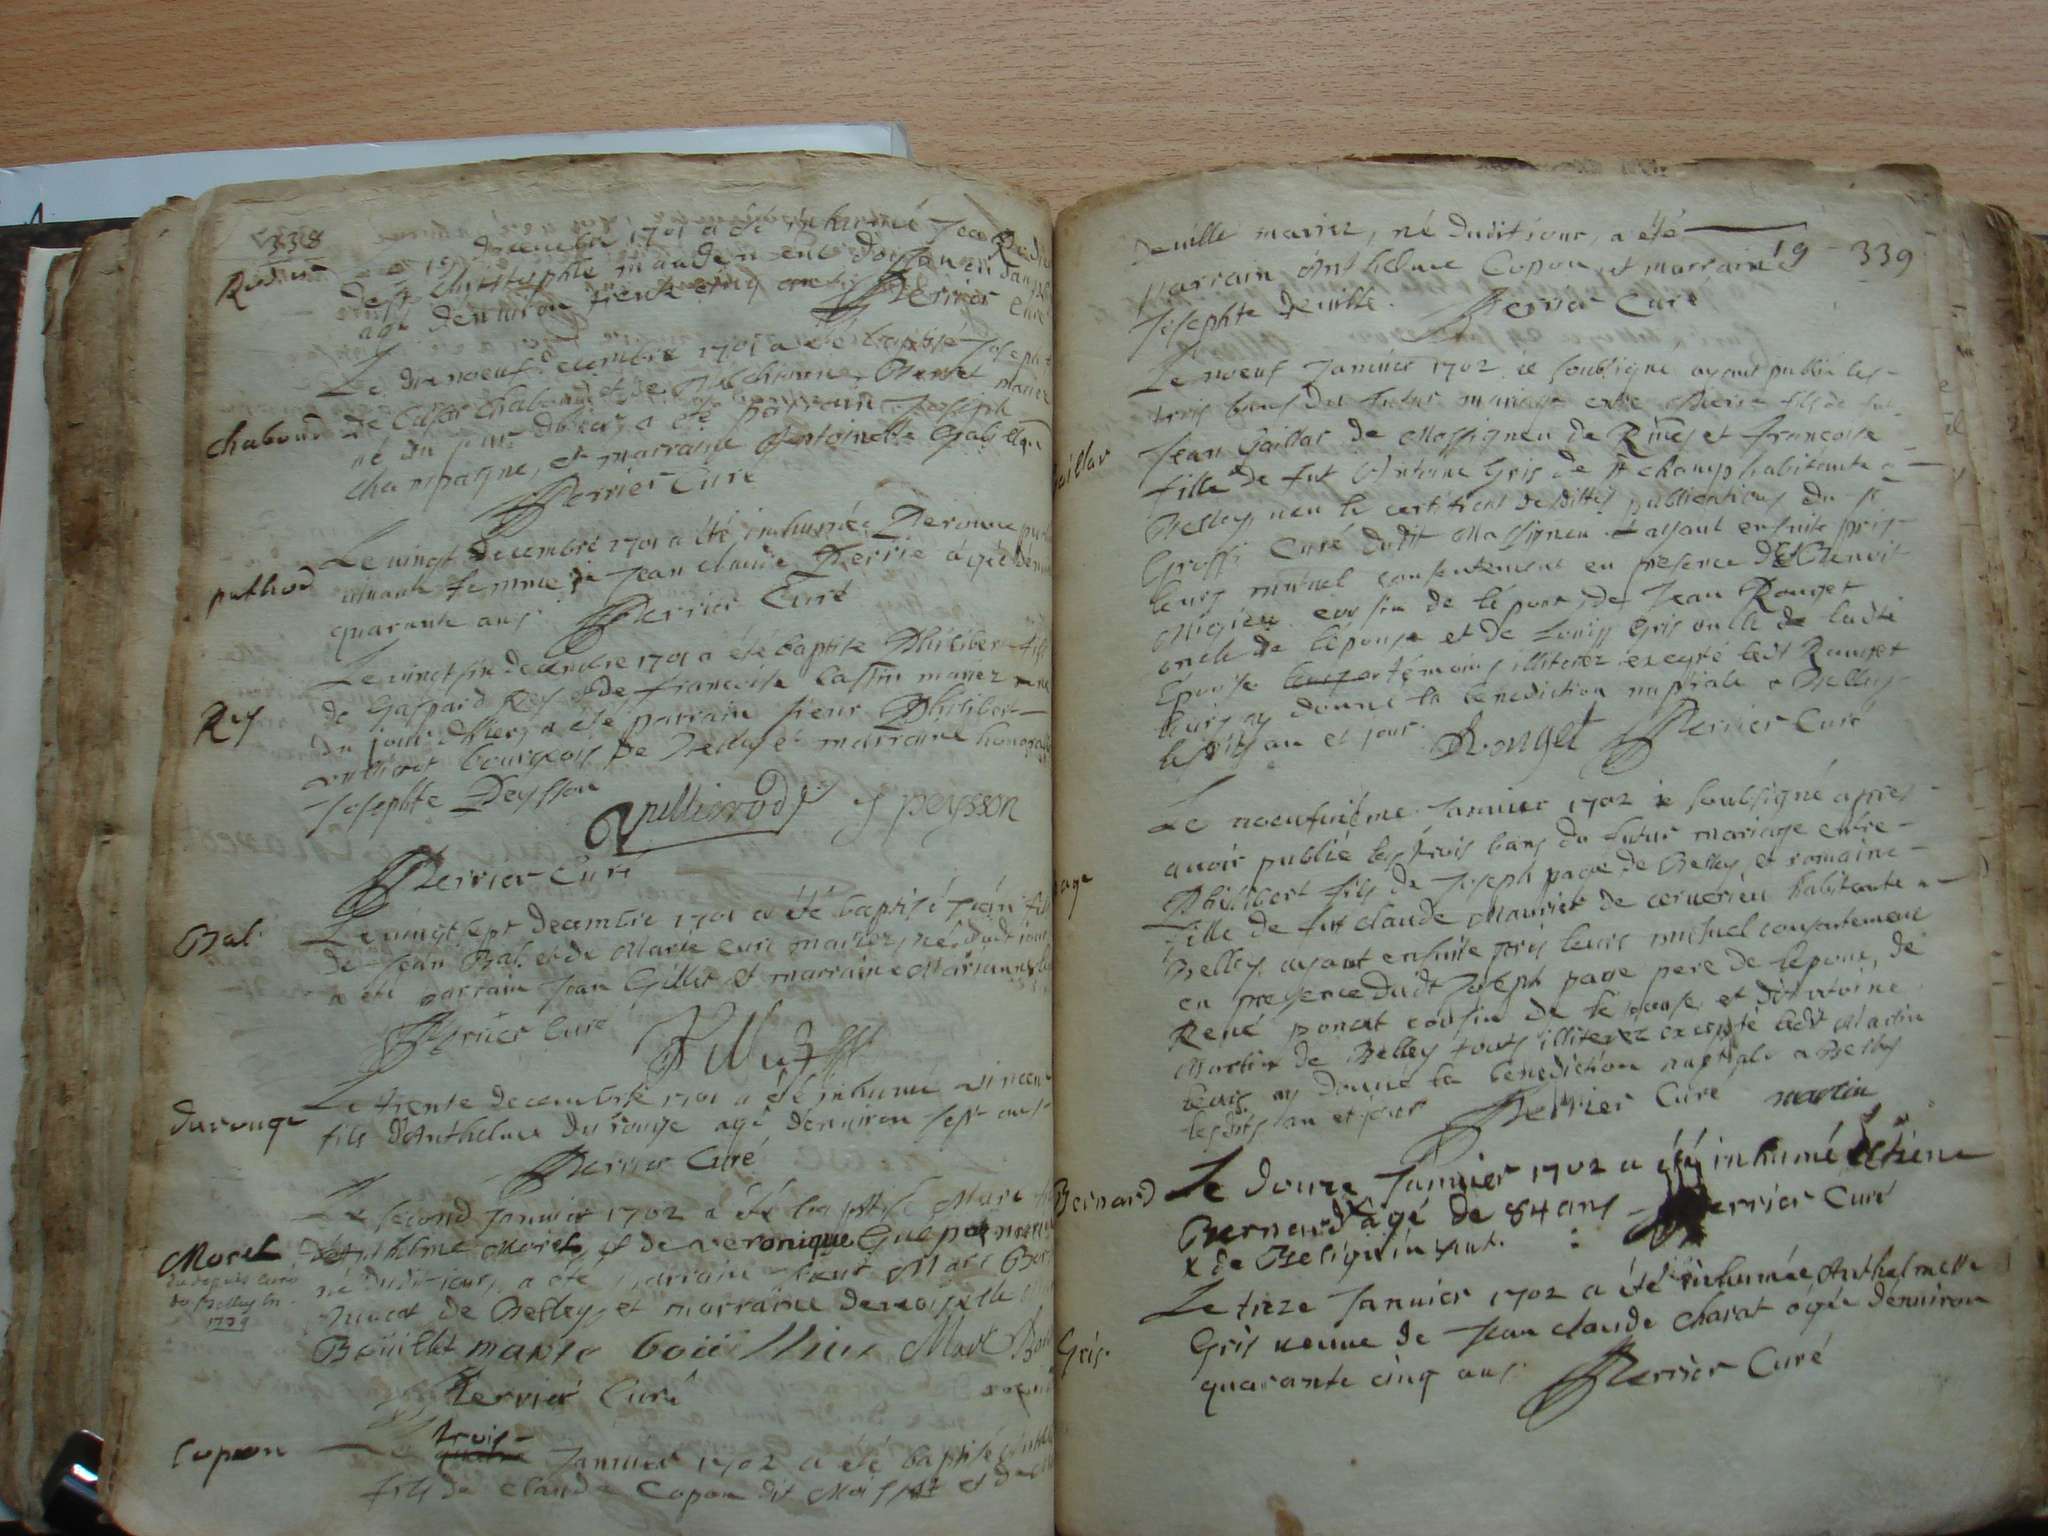 338
Rodin
decembre 1701 a été inhumé Jean
de St Christophle mandement
agé denviron trente cinq ans Perrier Curé
Le dixneuf decembre 1701 a été baptisé Joseph
Chaboud de Cesar Chaboud et de mariez
né du jour dhier, a été parrain Joseph
Champagne, et marraine Antoinette
Perrier Curé
Le vingt decembre 1701 a été inhumée Peronne
puthod vivante femme de Jean Claude Perrie agée
quarante ans Perrier Curé
Le vingt six decembre 1701 a été baptisé Philibert fils
Rey de Gaspard Rey et de Francoise Cassin mariez né
du jour dhier, a été parrain sieur Philibert
bourgeois de Belley et marraine
Josephte Peysson
J peysson
Perrier Curé
Le vingt sept decembre 1701 a été baptisé Jean fils
Bal de Jean Bal et de Marie mariez, né dudit jour
a été parrain Jean Gillet et marraine Marianne
Perrier Curé
Le trente decembre 1701 a été inhumé vincent
durouge fils d'Anthelme du rouge agé denviron sept ans
Perrier Curé
Le second Janvier 1702 a été baptisé Marc
Morel d'Anthelme Morel, et de veronique
du Belley en
1729
né dudit jour, a été parrain sieur Marc
de Belley, et marraine demoiselle
Marc
Perrier Curé
trois
Copon Le quatre Janvier 1702 a été baptisé
fils de Claude Copon dit et de
19 - 339
Deville mariez, né dudit jour, a été
parrain Anthelme Copon et marraine
Josephte Deville. Perrier Curé
Le noeuf Janvier 1702 ie soubsigné ayant publié les
trois bans du futur mariage entre Pierre fils de fut
Gaillar Jean Gaillar de Massigneu de Rives et francoise
fille de fut Antoine Gris de St champ habitante a
Belley, veu le certificat desdittes publications du Sr
Groffi Curé dudit Massigneu et ayant ensuite pris
leurs mutuel consentement en presence de Benoit
Migieu cousin de lépoux, de Jean Rouget
oncle de lépouse et de Louis Gris oncle de ladte
Epouse témoins illiterez excepté ledt Rouget
leurs ay donné la benediction nuptiale a Belley
lesdits an et jour. Rouget Perrier Curé
Le noeufvième Janvier 1702 ie soubsigné apres
avoir publié les trois bans du futur mariage entre
page Philibert fils de Joseph page de Belley et romaine
fille de fut Claude Maurier de ceverieu habitante a
Belley ayant ensuite pris leurs mutuel consentement
en presence dudt Joseph page pere de lépoux, de
René poncet cousin de lépouse, et d'Antoine
Martin de Belley tous illiterez excepté ledt Martin
leurs ay donné la benediction nuptiale a Belley
lesdits an et jour Perrier Curé martin
Bernard Le douze Janvier 1702 a été inhumé Etiene
Bernard agé de 84 ans Perrier Curé
x de
Le treze Janvier 1702 a été inhumée Anthelmette
Gris Gris veuve de Jean Claude Charat agée denviron
quarante cinq ans Perrier Curé